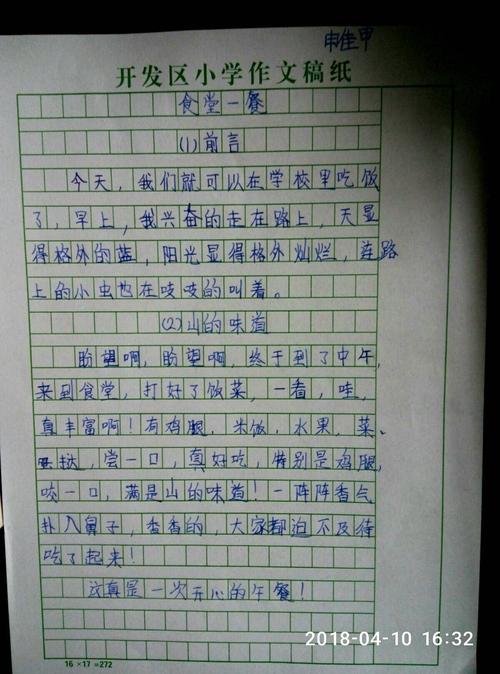 申佳甲
开发区小学作文稿纸
食堂一餐
(1)前言
今天，我们就可以在学校里吃饭
了，早上，我兴奋的走在路上，天显
得格外的蓝，阳光显得格外灿烂，连路
上的小虫也在吱吱的叫着。
(2)山的味道
盼望啊，盼望啊，终于到了中午，
来到食堂，打好了饭菜，一看，哇，
真丰富啊！有鸡腿，米饭，水果，菜、
挞，尝一口，真好吃，特别是鸡腿，
咬一口，满是山的味道！一阵阵香气
扑入鼻子，香香的，大家都迫不及待
吃了起来！
这真是一次开心的午餐！
16×17=272
2018-04-10 16:32